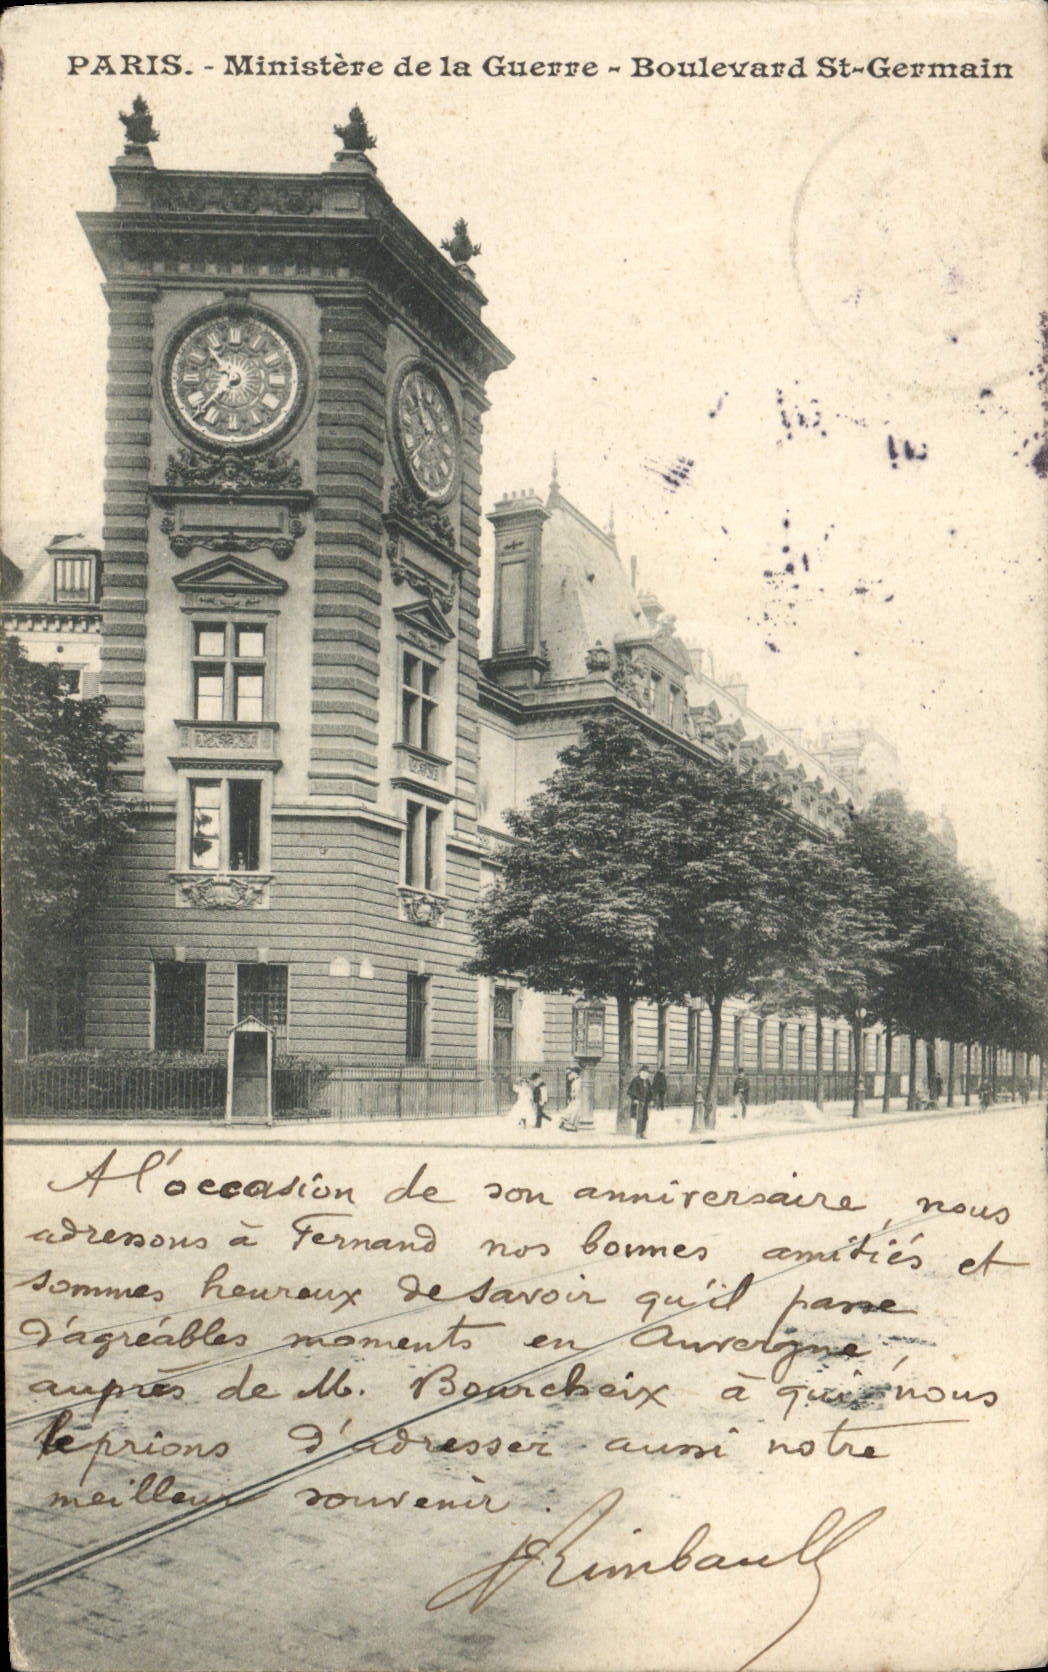 PARIS. - Ministère de la Guerre - Boulevard St-Germain
A l'occasion de son anniversaire, nous
adressons à Fernand nos bonnes amitiés et
sommes heureux de savoir qu'il passe
d'agréables moments en Auvergne,
auprès de M. Bourcheix à qui nous
le prions d'adresser aussi notre
meilleur souvenir.
Rimbault